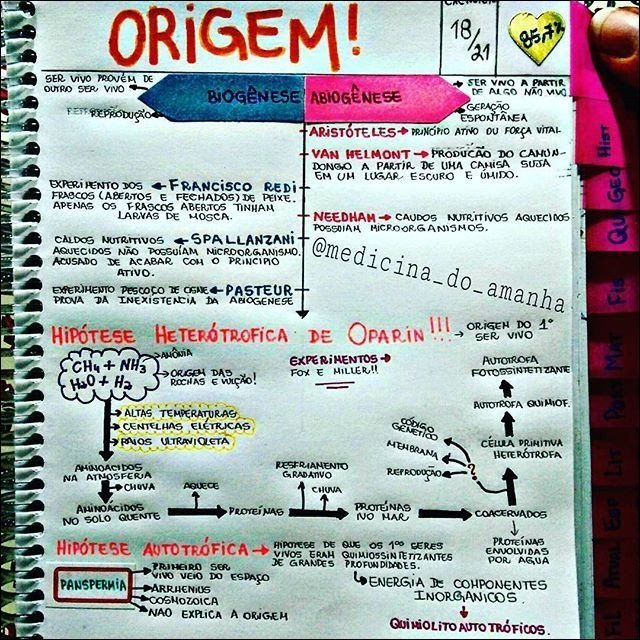 ORIGEM!
18/21
85,7%
SER VIVO PROVÉM DE
OUTRO SER VIVO
REPRODUÇÃO
BIOGÊNESE
ABIOGÊNESE
SER VIVO A PARTIR
DE ALGO NÃO VIVO
GERAÇÃO
ESPONTÂNEA
ARISTÓTELES → PRINCÍPIO ATIVO OU FORÇA VITAL
VAN HELMONT → PRODUÇÃO DO CAMUN-
DONGO A PARTIR DE UMA CAMISA SUJA
EM UM LUGAR ESCURO E ÚMIDO.
EXPERIMENTO DOS ← FRANCISCO REDI
FRASCOS (ABERTOS E FECHADOS) DE PEIXE.
APENAS OS FRASCOS ABERTOS TINHAM
LARVAS DE MOSCA.
NEEDHAM → CAUDOS NUTRITIVOS AQUECIDOS
POSSUIAM MICROORGANISMOS.
CALDOS NUTRITIVOS ← SPALLANZANI
AQUECIDOS NÃO POSSUIAM MICROORGANISMO.
ACUSADO DE ACABAR COM O PRINCIPIO
ATIVO.
@medicina_do_amanha
EXPERIMENTO PESCOÇO DE CISNE ← PASTEUR
PROVA DA INEXISTENCIA DA ABIOGENESE
HIPÓTESE HETERÓTROFICA DE OPARIN!!! → ORIGEM DO 1º
SER VIVO
CH4 + NH3
H2O + H2
AMÔNIA
ORIGEM DAS
ROCHAS E VULCÃO!
EXPERIMENTOS
FOX E MILLER!!
ALTAS TEMPERATURAS
CENTELHAS ELÉTRICAS
RAIOS ULTRAVIOLETA
AUTOTROFA
FOTOSSINTETIZANTE
AUTOTROFA QUIMIOF.
CÉLULA PRIMITIVA
HETERÓTROFA
CÓDIGO
GENÉTICO
MEMBRANA
REPRODUÇÃO
?
AMINOACIDOS
NA ATMOSFERIA
CHUVA
AMINOACIDOS
NO SOLO QUENTE
AQUECE
PROTEÍNAS
RESFRIAMENTO
GRADATIVO
CHUVA
PROTEÍNAS
NO MAR
COACERVADOS
PROTEÍNAS
ENVOLVIDAS
POR ÁGUA
HIPÓTESE AUTOTRÓFICA → HIPÓTESE DE QUE OS 1ºˢ SERES
VIVOS ERAM QUIMIOSSINTETIZANTES
DE GRANDES PROFUNDEZAS.
ENERGIA DE COMPONENTES
INORGANICOS.
QUIMIOLITOAUTOTRÓFICOS.
PANSPERMIA
PRIMEIRO SER
VIVO VEIO DO ESPAÇO
ARRHENIUS
COSMOZOICA
NÃO EXPLICA A ORIGEM
Hist
Geo
Qui
Fis
Mat
Port
Lit
Esp
Atual
Fil